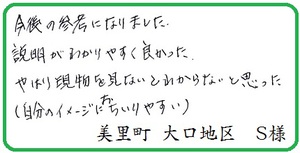 今後の参考になりました.
説明がわかりやすく良かった.
やはり現物を見ないとわからないと思った
(自分のイメージにおちいりやすい)
美里町 大口地区 S様